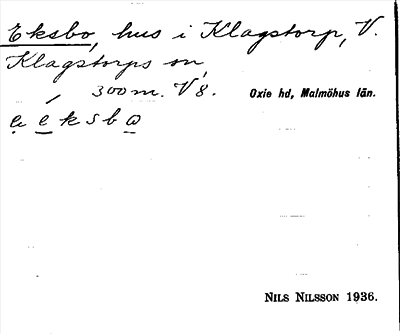 Eksbo, hus i Klagstorp, V.
Klagstorps sn,
300 m. V 8. Oxie hd, Malmöhus län.
e e k s b o
NILS NILSSON 1936.